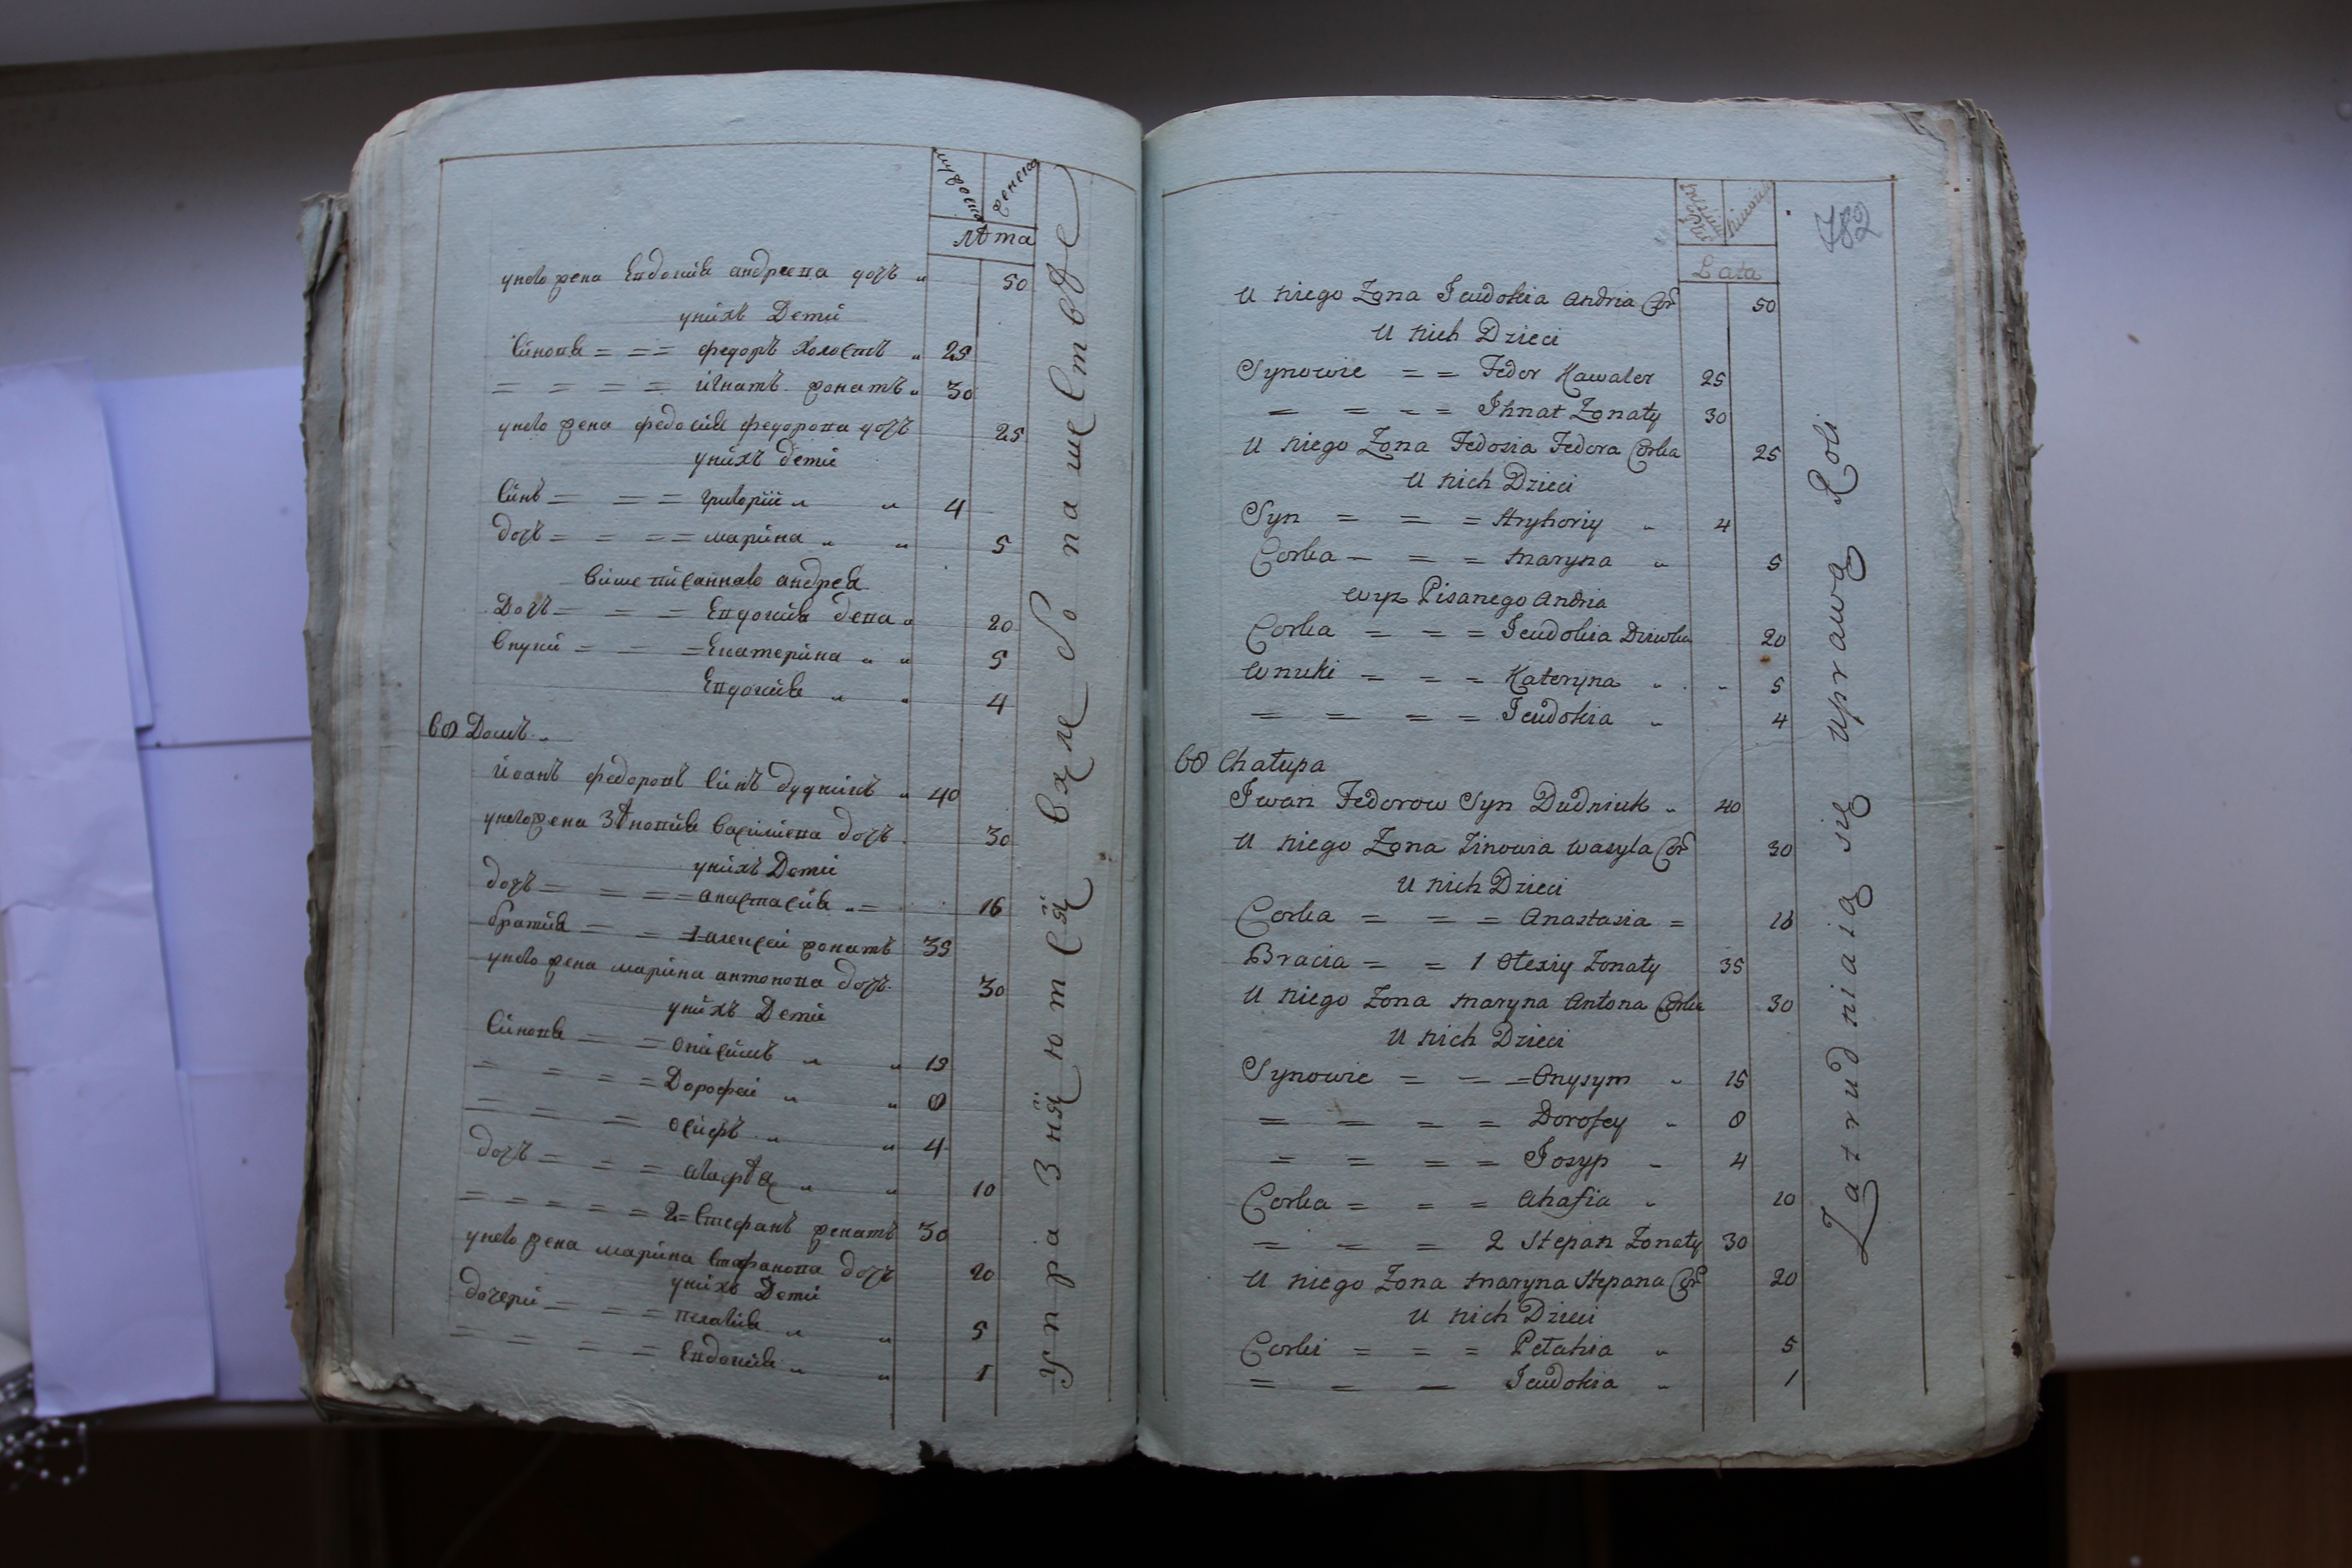 мужеска
женска
лѣта
унего жена Евдокия андреева дочь 50
унихъ Дети
Синовя = = = федоръ холостъ 25
= = = = игнатъ жонатъ 30
унего жена федосия федорова дочь 25
унихъ дети
Синъ = = = григорий 4
дочь = = = = марина 5
вишеписаннаго андрея
Дочь = = = Евдокия дева 20
внуки = = = Екатерина 5
Евдокия 4
68 Домъ
Иоанъ федоровъ синъ дудникъ 40
унего жена Зѣновия василиева дочь 30
унихъ Дети
дочь = = = = анастасия = 16
братия = = 1 алексей жонатъ 35
унего жена марина антонова дочь 30
унихъ Дети
Синовя = = Онисимъ 15
= = = = Дорофей 8
= = = Осифъ 4
дочь = = = агафѣя 10
= = = = = 2 = Стефанъ женатъ 30
унего жена марина Стефанова дочь 20
унихъ Дети
дочери = = = пелагия 5
= = = = Евдокия 1
Упражняются в хлебопашестве
782
Lata
U niego Zona Jeudokia Andria Cor 50
U nich Dzieci
Synowie = = Fedor Kawaler 25
= = = = Ihnat Zonaty 30
U niego Zona Fedosia Fedora Corka 25
U nich Dzieci
Syn = = = Hryhoriy 4
Corka = = = Maryna 5
wyz Pisanego Andria
Corka = = = Jeudokia Dziwka 20
Wnuki = = = Kateryna 5
= = = = Jeudokia 4
68 Chałupa
Iwan Fedorow Syn Dudniuk 40
U niego Zona Zinowia Wasyla Cor 30
U nich Dzieci
Corka = = = Anastasia = 16
Bracia = = 1 Ołexiy Zonaty 35
U niego Zona Maryna Antona Corka 30
U nich Dzieci
Synowie = = = Onysym 15
= = = = Dorofey 8
= = = = Josyp 4
Corka = = = Ahafia 10
= = = 2 Stepan Zonaty 30
U niego Zona Maryna Stepana Cor 20
U nich Dzieci
Corki = = = Pełahia 5
= = = Jeudokia 1
Zatrudniaią się uprawą Roli